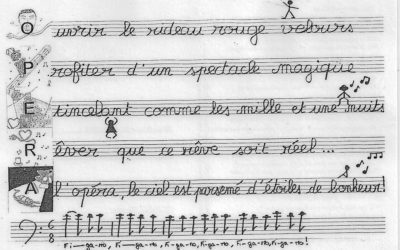 Ouvrir le rideau rouge velours
Profiter d'un spectacle magique
Etincelant comme les mille et une nuits
Rêver que ce rêve soit réel...
A l'opéra, le ciel est parsemé d'étoiles de bonheur!
6
8
Fi-ga-ro, Fi-ga-ro, Fi-ga-ro, Fi-ga-ro, Fi-ga-ro, Fi-ga-ro!